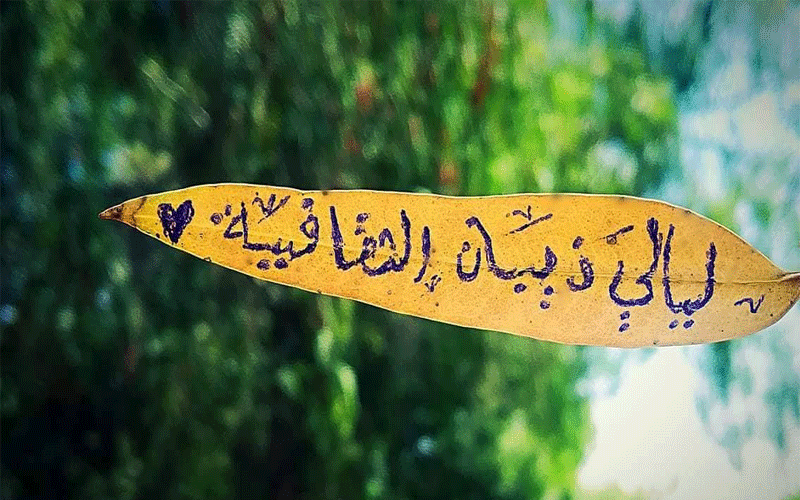 ليالي ذبيان الثقافيّة